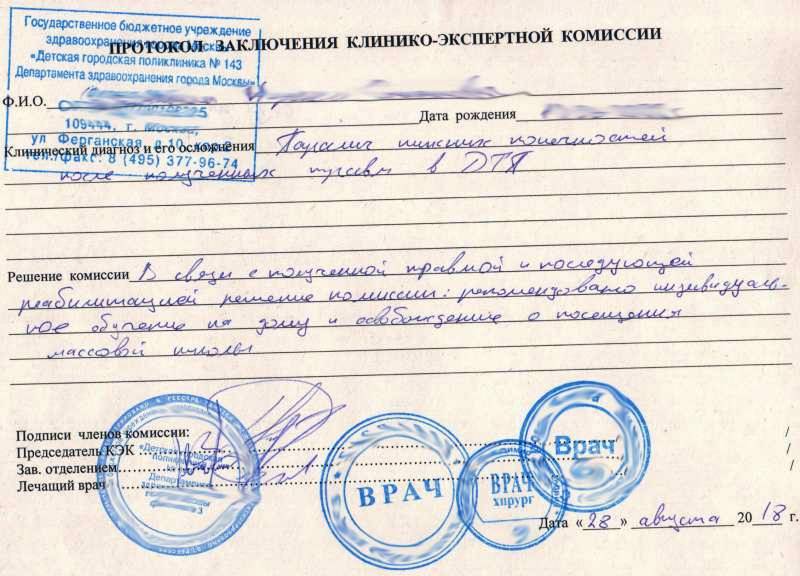 Государственное бюджетное учреждение
здравоохранения
ПРОТОКОЛ ЗАКЛЮЧЕНИЯ КЛИНИКО-ЭКСПЕРТНОЙ КОМИССИИ
«Детская городская поликлиника № 143
Департамента здравоохранения города Москвы»
Ф.И.О.
Дата рождения
109444, г. Москва,
ул Ферганская д.10
тел./факс: 8 (495) 377-96-74
Клинический диагноз и его осложнения Паралич нижних конечностей
после полученных травм в ДТП
Решение комиссии В связи с полученной травмой и последующей
реабилитацией решение комиссии: рекомендовано индивидуаль-
ное обучение на дому и освобождение о посещения
массовой школы
Подписи членов комиссии:
Председатель КЭК
Зав. отделением
Лечащий врач
ВРАЧ
ВРАЧ
хирург
Врач
Дата «28» августа 2018 г.